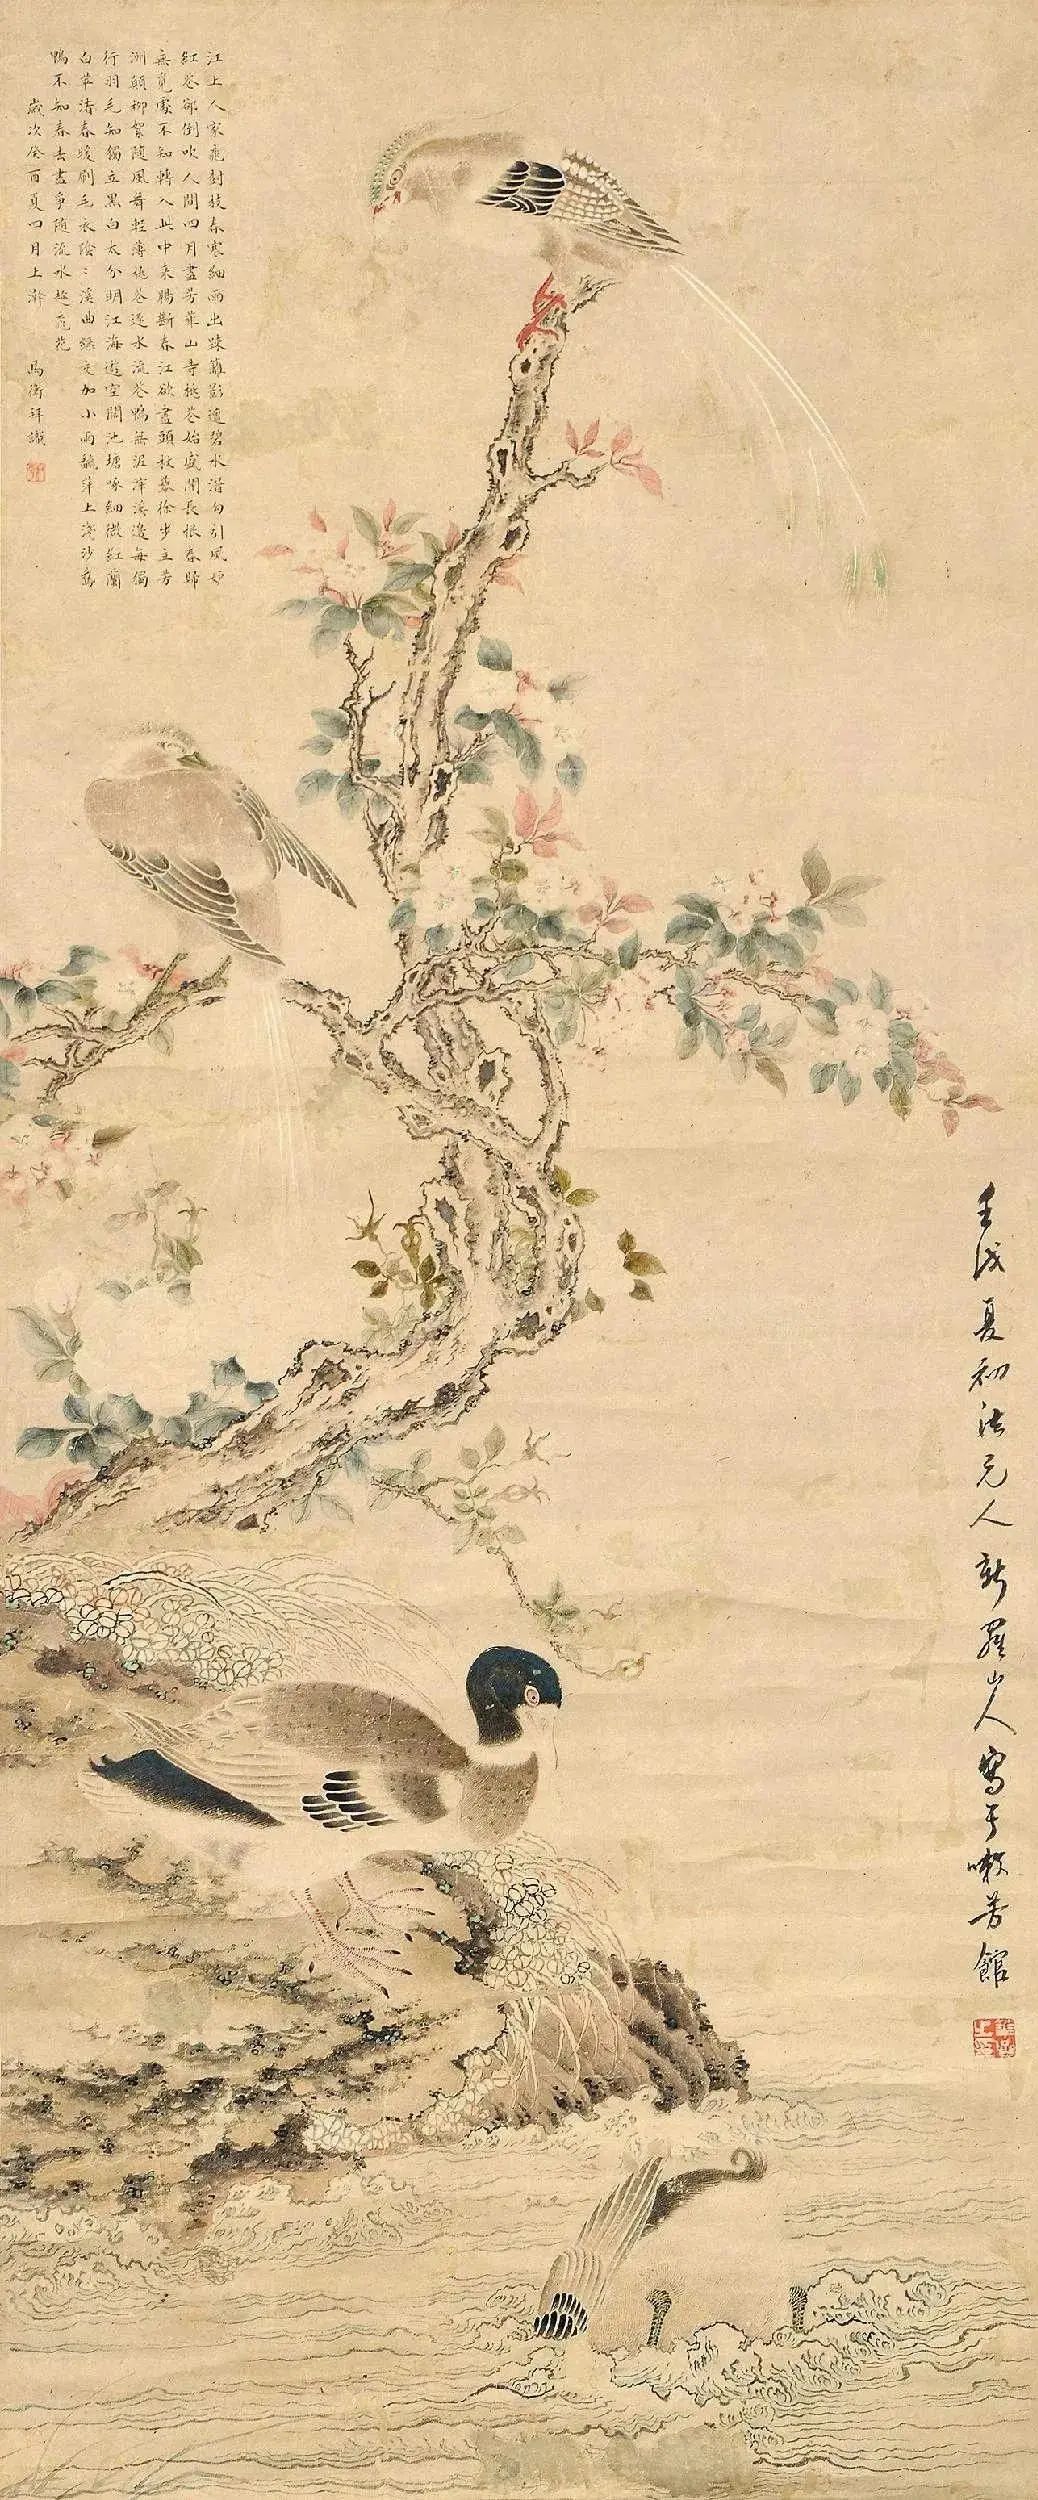 江上人家桃樹枝春寒細雨出疎籬影遭碧水潛勾引風妒
紅花卻倒吹人間四月盡芳菲山寺桃花始盛開長恨春歸
無覓處不知轉入此中來腸斷春江欲盡頭杖藜徐步立芳
洲顛柳絮隨風舞輕薄桃花逐水流花鴨無泥滓溪邊每獨
行羽毛知獨立黑白太分明江海遊空闊池塘啄細微紅蘭
白草清春暖刷毛衣陰〻溪曲綠交加小雨翻萍上淺沙鵞
鴨不知春去盡爭隨流水趁桃花
歲次癸酉夏四月上澣 馬衡拜識
壬戌夏初法元人新羅山人寫于嗽芳館